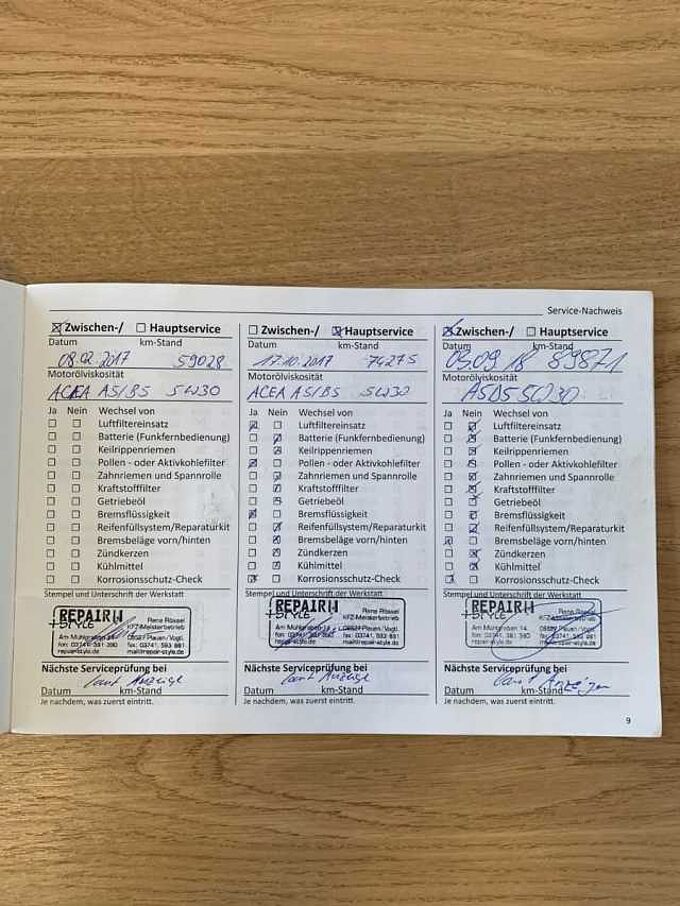 Service-Nachweis
Zwischen-/ Hauptservice
Datum km-Stand
08.02.2017 59028
Motorölviskosität
ACEA A5/B5 5W30
Ja Nein Wechsel von
Luftfiltereinsatz
Batterie (Funkfernbedienung)
Keilrippenriemen
Pollen - oder Aktivkohlefilter
Zahnriemen und Spannrolle
Kraftstofffilter
Getriebeöl
Bremsflüssigkeit
Reifenfüllsystem/Reparaturkit
Bremsbeläge vorn/hinten
Zündkerzen
Kühlmittel
Korrosionsschutz-Check
Stempel und Unterschrift der Werkstatt
REPAIR
+STYLE
Rene Rössel
KFZ-Meisterbetrieb
Am Mühlgraben 14 08527 Plauen/Vogtl.
fon: 03741. 381 390 fax: 03741. 593 881
repair-style.de mail@repair-style.de
Nächste Serviceprüfung bei
laut Anzeige
Datum km-Stand
Je nachdem, was zuerst eintrifft.
Zwischen-/ Hauptservice
Datum km-Stand
17.10.2017 74275
Motorölviskosität
ACEA A5/B5 5W30
Ja Nein Wechsel von
Luftfiltereinsatz
Batterie (Funkfernbedienung)
Keilrippenriemen
Pollen - oder Aktivkohlefilter
Zahnriemen und Spannrolle
Kraftstofffilter
Getriebeöl
Bremsflüssigkeit
Reifenfüllsystem/Reparaturkit
Bremsbeläge vorn/hinten
Zündkerzen
Kühlmittel
Korrosionsschutz-Check
Stempel und Unterschrift der Werkstatt
REPAIR
+STYLE
Rene Rössel
KFZ-Meisterbetrieb
Am Mühlgraben 14 08527 Plauen/Vogtl.
fon: 03741. 381 390 fax: 03741. 593 881
repair-style.de mail@repair-style.de
Nächste Serviceprüfung bei
laut Anzeige
Datum km-Stand
Je nachdem, was zuerst eintrifft.
Zwischen-/ Hauptservice
Datum km-Stand
03.09 18 89871
Motorölviskosität
A5B5 5W30
Ja Nein Wechsel von
Luftfiltereinsatz
Batterie (Funkfernbedienung)
Keilrippenriemen
Pollen - oder Aktivkohlefilter
Zahnriemen und Spannrolle
Kraftstofffilter
Getriebeöl
Bremsflüssigkeit
Reifenfüllsystem/Reparaturkit
Bremsbeläge vorn/hinten
Zündkerzen
Kühlmittel
Korrosionsschutz-Check
Stempel und Unterschrift der Werkstatt
REPAIR
+STYLE
Rene Rössel
KFZ-Meisterbetrieb
Am Mühlgraben 14 08527 Plauen/Vogtl.
fon: 03741. 381 390 fax: 03741. 593 881
repair-style.de mail@repair-style.de
Nächste Serviceprüfung bei
laut Anzeige
Datum km-Stand
Je nachdem, was zuerst eintrifft.
9